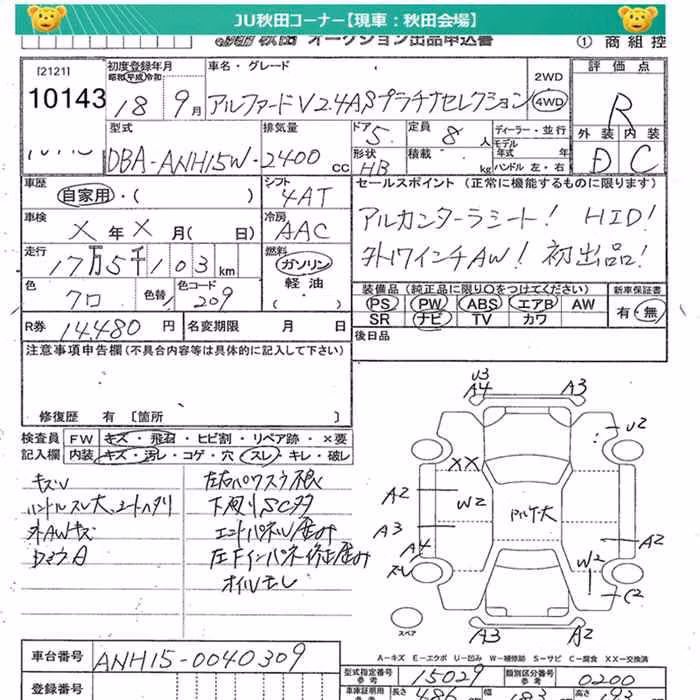 JU秋田コーナー【現車：秋田会場】
オークション出品申込書 ① 商組控
[2121]
10143
初度登録年月
昭和 平成 令和
18 9月
車名・グレード
アルファードV 2.4ASプラチナセレクション
2WD
4WD
評価点
R
外装 内装
D C
型式
DBA-ANH15W-
排気量
2400 CC
ドア
5
形状
HB
定員
8人
積載
kg
ディーラー・並行
モデル年式 年
ハンドル 左・右
車歴
自家用・( )
シフト
4AT
車検
X年X月(日)
冷房
AAC
走行
17万5千103km
燃料
ガソリン
軽油
( )
色
クロ
色替
色コード
209
R券 14,480円
名変期限 月 日
セールスポイント (正常に機能するものに限ります)
アルカンターラシート! HID!
外17インチAW! 初出品!
装備品 (純正品に限り○をつけてください)
PS PW ABS エアB AW
SR ナビ TV カワ
新車保証書
有・無
後日品
注意事項申告欄(不具合内容等は具体的に記入して下さい)
修復歴 有 [箇所 ]
検査員
記入欄
FW キズ・飛石・ヒビ割・リペア跡・×要
内装 キズ・汚レ・コゲ・穴・スレ・キレ・破レ
キズU
ハンドルスレ大
外AWキズ
左右
下廻りSC
エンドパネル歪み
オイルモレ
U3
A4 A3
U2
XX
A2
W2
A3
A4
スレ
A2
W2
C2
A3 A2
スペア
A－キズ E－エクボ U－凹み W－補修跡 S－サビ C－腐食 XX－交換済
車台番号 ANH15-0040309
登録番号
型式指定番号
参考
15029
類別区分番号
参考
0200
車庫証明用
参考
長さ
486
幅
183
高さ
193